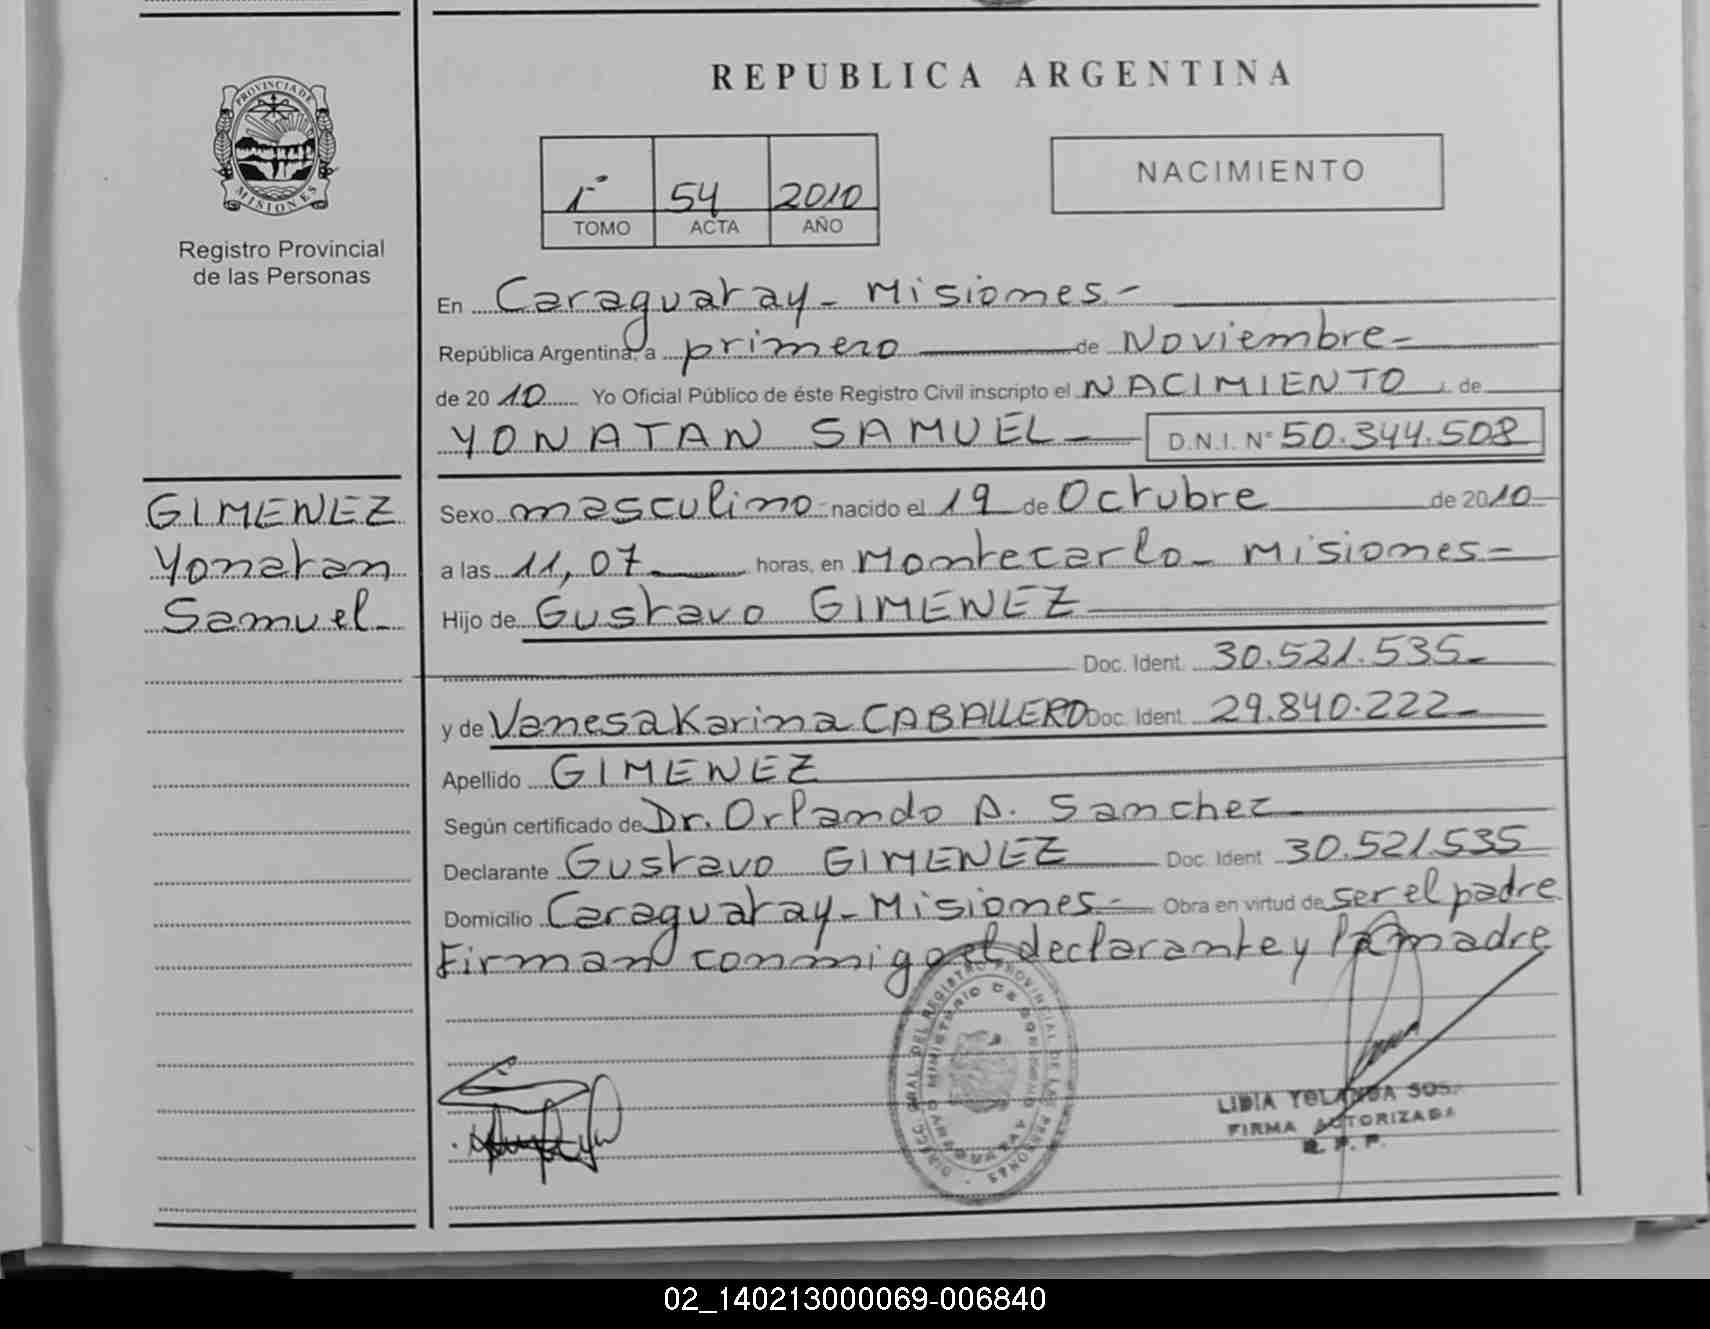 REPUBLICA ARGENTINA
PROVINCIA DE MISIONES
Registro Provincial
de las Personas
1º 54 2010
TOMO ACTA AÑO
NACIMIENTO
En Caraguatay - Misiones -
República Argentina, a primero de Noviembre -
de 2010 Yo Oficial Público de éste Registro Civil inscripto el NACIMIENTO de
YONATAN SAMUEL - D.N.I. Nº 50.344.508
GIMENEZ
Yonatan
Samuel -
Sexo masculino nacido el 19 de Octubre de 2010
a las 11,07 horas, en Montecarlo - Misiones -
Hijo de Gustavo GIMENEZ
Doc. Ident. 30.521.535 -
y de Vanesa Karina CABALLERO Doc. Ident. 29.840.222 -
Apellido GIMENEZ
Según certificado de Dr. Orlando A. Sanchez -
Declarante Gustavo GIMENEZ Doc. Ident 30.521.535
Domicilio Caraguatay - Misiones - Obra en virtud de ser el padre
Firman conmigo el declarante y la madre
LIDIA YOLANDA SOSA
FIRMA AUTORIZADA
R. P. P.
02_140213000069-006840